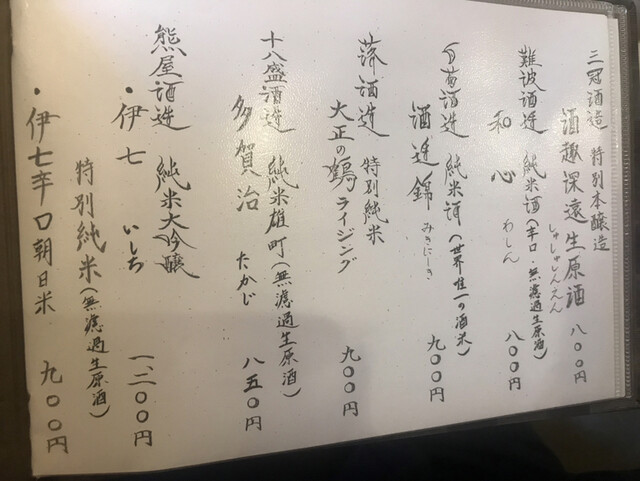 三冠酒造 特別本醸造
酒趣深遠生原酒 八〇〇円
しゅしゅしんえん
難波酒造 純米酒(辛口・無濾過生原酒)
和心 わしん 八〇〇円
酒造 純米酒(世界唯一の酒米)
酒造錦 みきにしき 九〇〇円
落酒造 特別純米
大正の鶴ライジング 九〇〇円
十八盛酒造 純米雄町(無濾過生原酒)
多賀治 たかじ 八五〇円
熊屋酒造 純米大吟醸
・伊七 いしち 一、二〇〇円
特別純米(無濾過生原酒)
・伊七辛口朝日米 九〇〇円